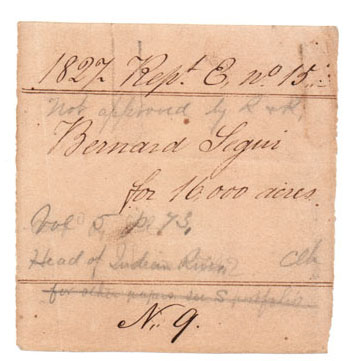 1827 Rept. E, no 15.
Not approved by R & R.
Bernard Segui
for 16,000 acres.
Vol 5, p. 73,
Head of Indian River
for other papers see S portfolio
No. 9.